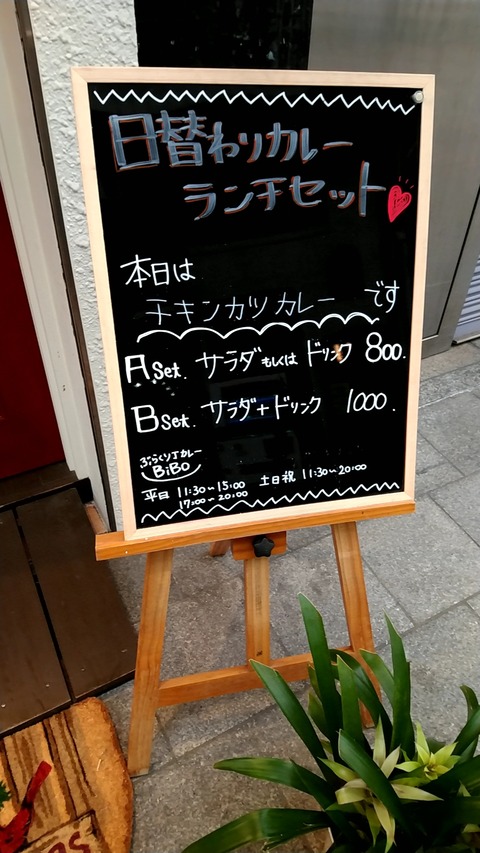 日替わりカレー
ランチセット
本日は
チキンカツカレー です
A Set. サラダもしくはドリンク 800.
B Set. サラダ+ドリンク 1000.
ぶらくり丁カレー
BiBO
平日 11:30~15:00 土日祝 11:30~20:00
17:00~20:00